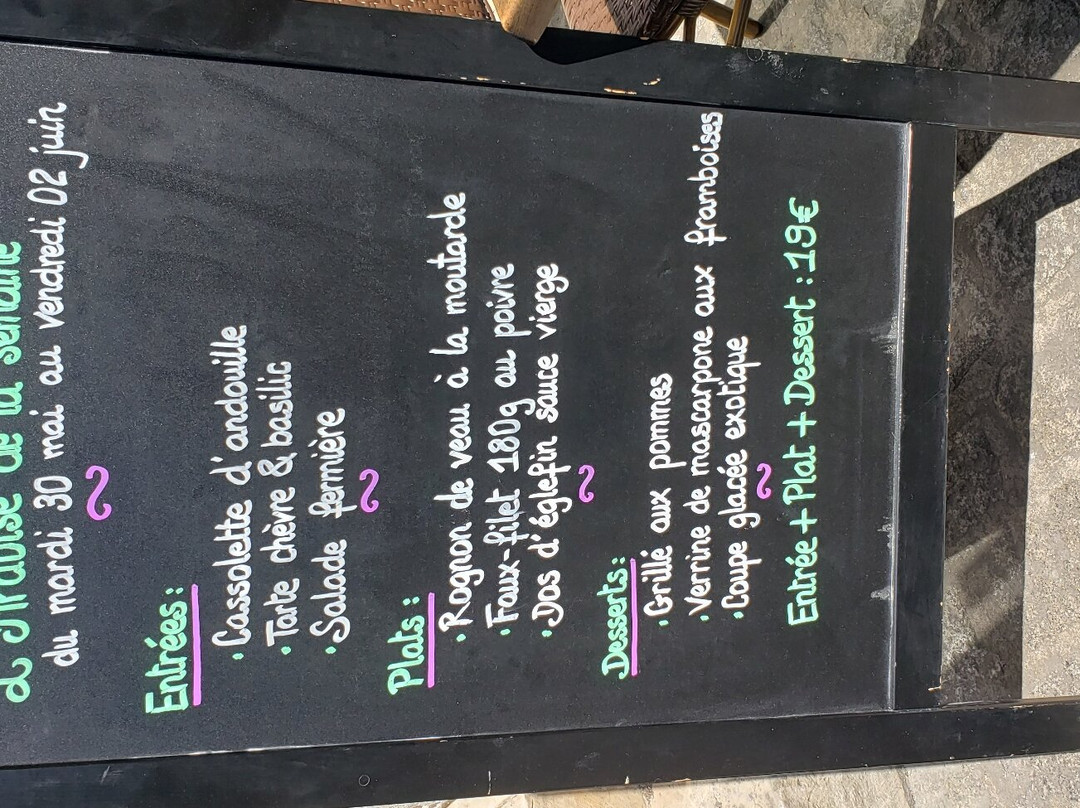 L'Ardoise de la semaine
du mardi 30 mai au vendredi 02 juin
Entrées :
• Cassolette d'andouille
• Tarte chèvre & basilic
• Salade fermière
Plats :
• Rognon de veau à la moutarde
• Faux-filet 180g au poivre
• Dos d'églefin sauce vierge
Desserts :
• Grillé aux pommes
• Verrine de mascarpone aux framboises
• Coupe glacée exotique
Entrée + Plat + Dessert : 19€